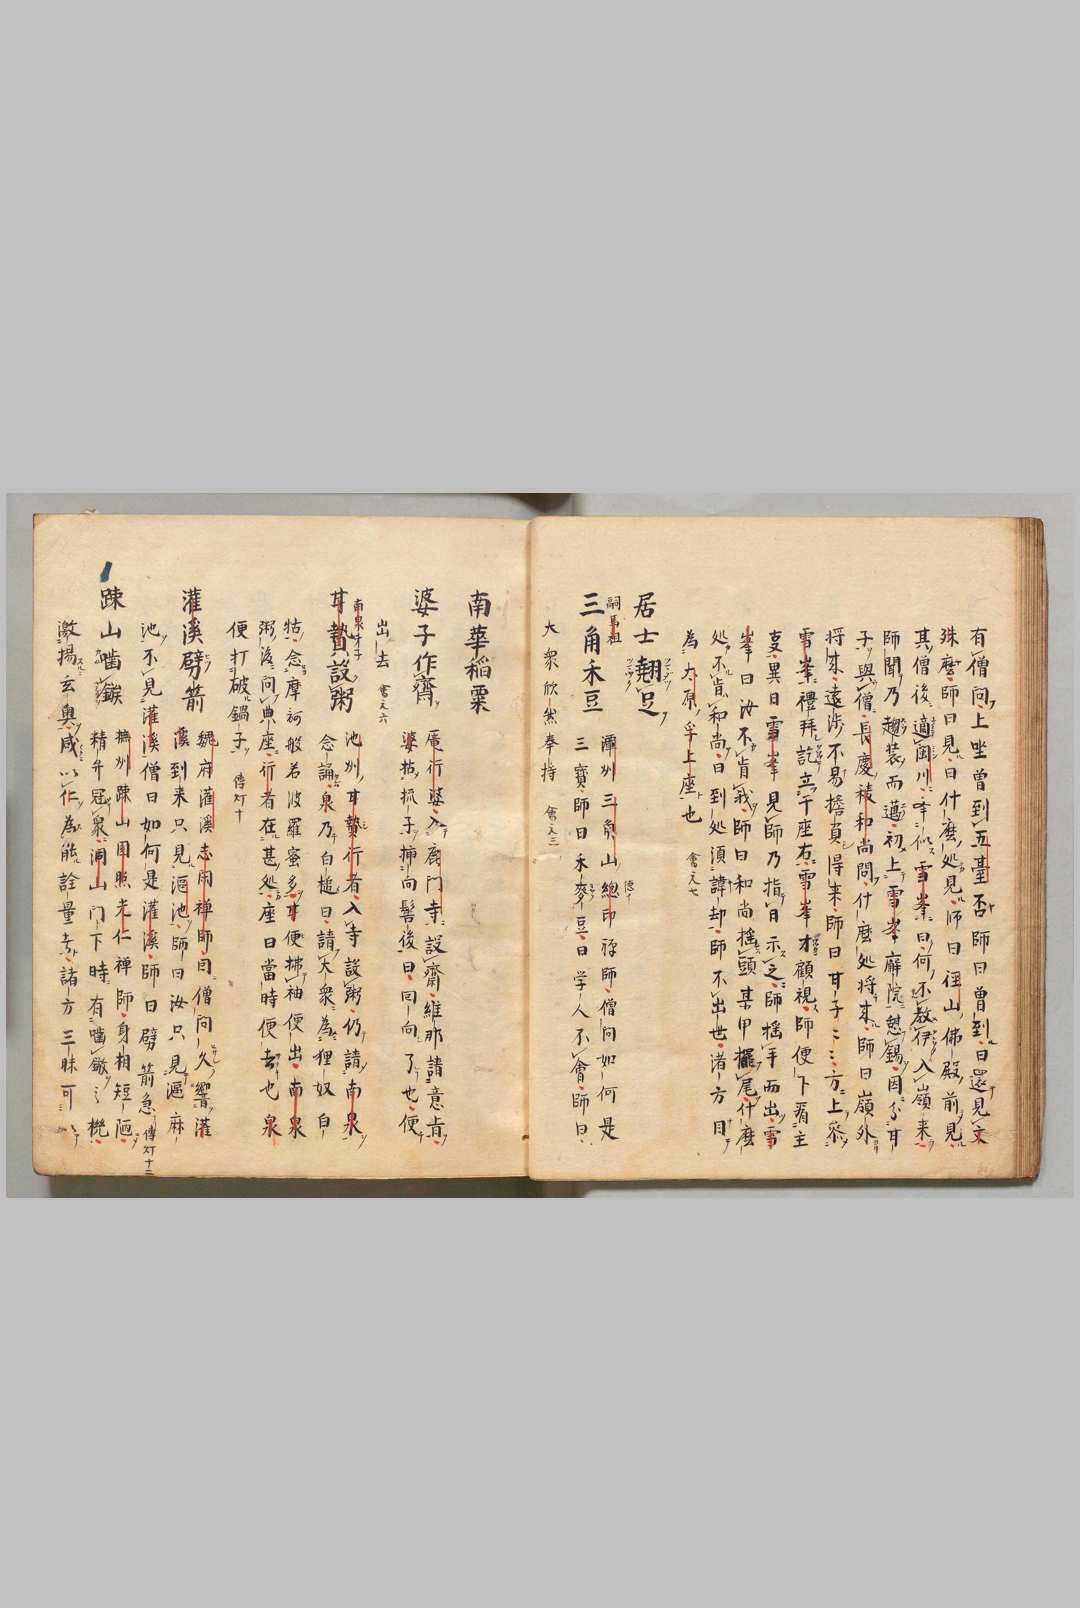 有僧問上坐曽到五臺否師曰曽到曰還見文
殊麼師曰見曰什麼処見師曰徑山佛殿前見
其僧後適閩川挙似雪峯曰何不教伊入嶺来
師聞乃趨装而邁初上雪峯廨院憩錫因分甘
子與僧長慶稜和尚問什麼処将来師曰嶺外
将来遠渉不易擔負得来師曰甘子甘子方上参
雪峯禮拜訖立于座右雪峯才顧視師便下看主
支異日雪峯見師乃指日示之師揺手而出雪
峯曰汝不肯我師曰和尚揺頭某甲擺尾什麼
処不肯和尚曰到処須諱却師不出世諸方目
為太原孚上座也 會元七
居士翹足
三角禾豆 嗣馬祖
潭州三角山總印禅師僧問如何是
三寶師曰禾麥豆曰学人不會師曰
大衆欣然奉持 會元三
南華稲粟
婆子作齋
庵行婆入鹿門寺設齋維那請意旨
婆拈梳子挿向髻後曰回向了也便
出去 會元六
甘贄設粥 南泉才子
池州甘贄行者入寺設粥仍請南泉
念誦泉乃白槌曰請大衆為狸奴白
牯念摩訶般若波羅蜜多甘便拂袖便出南泉
粥後問典座行者在甚処座曰當時便去也泉
便打破鍋子 傳灯十
灌溪劈箭
魏府灌溪志閑禅師因僧問久響灌
溪到来只見漚池師曰汝只見漚麻
池不見灌溪僧曰如何是灌溪師曰劈箭急 傳灯十二
踈山嚙鏃
撫州踈山圓照光仁禅師身相短陋
精弁冠衆洞山門下時有嚙鏃之機
激揚玄奥咸以仁為能詮量者諸方三昧可